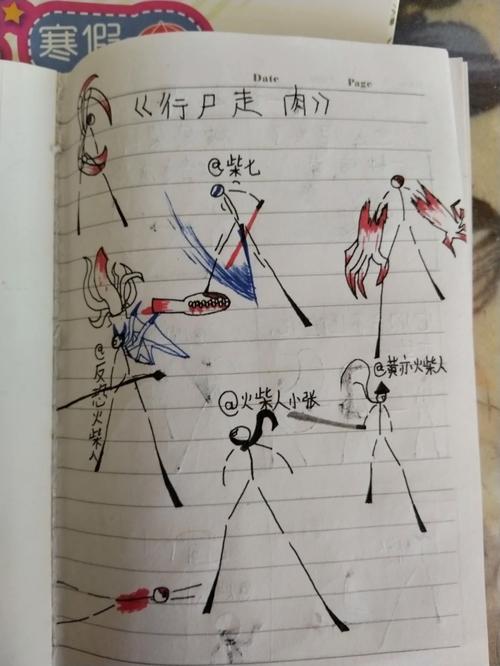 寒假
Date Page
《行尸走肉》
@柴七
@黄亦火柴人
@反恐火柴人
@火柴人小张